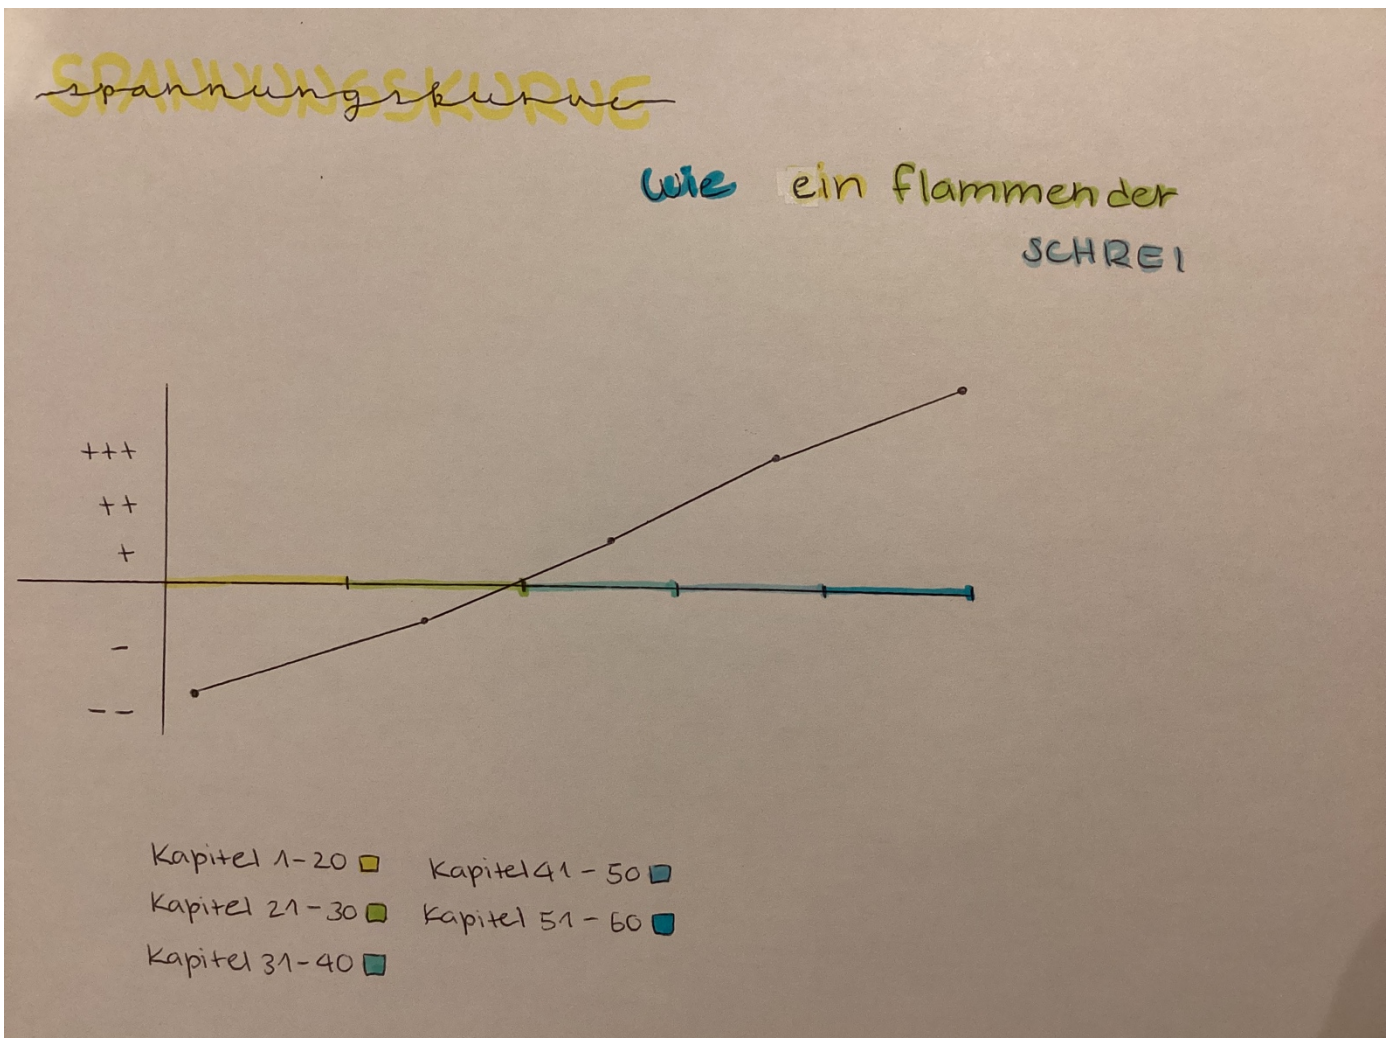 SPANNUNGSKURVE
spannungskurve
wie ein flammender
SCHREI
+++
++
+
-
--
Kapitel 1-20
Kapitel 21-30
Kapitel 31-40
Kapitel 41-50
Kapitel 51-60